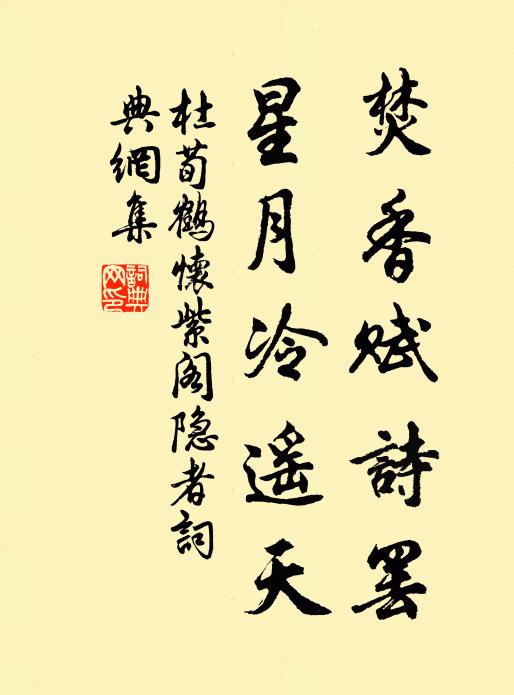 焚香賦詩罢
星月冷遥天
杜荀鶴懷紫阁隐者詞
典網集
詞典
网印